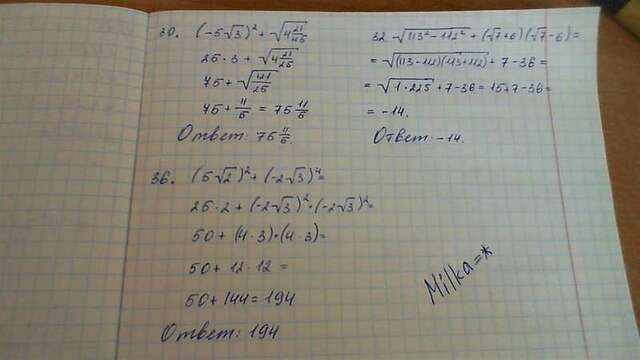 30. (-5√3)² + √4 21/25
25·3 + √4 21/25
75 + √121/25
75 + 11/5 = 75 11/5
Ответ: 75 11/5.
32. √113²-112² + (√7+6)(√7-6) =
= √(113-112)(113+112) + 7-36 =
= √1·225 + 7-36 = 15+7-36 =
= -14.
Ответ: -14.
36. (5√2)² + (-2√3)⁴ =
25·2 + (-2√3)²·(-2√3)² =
50 + (4·3)·(4·3) =
50 + 12·12 =
50 + 144 = 194
Ответ: 194
Milka=*